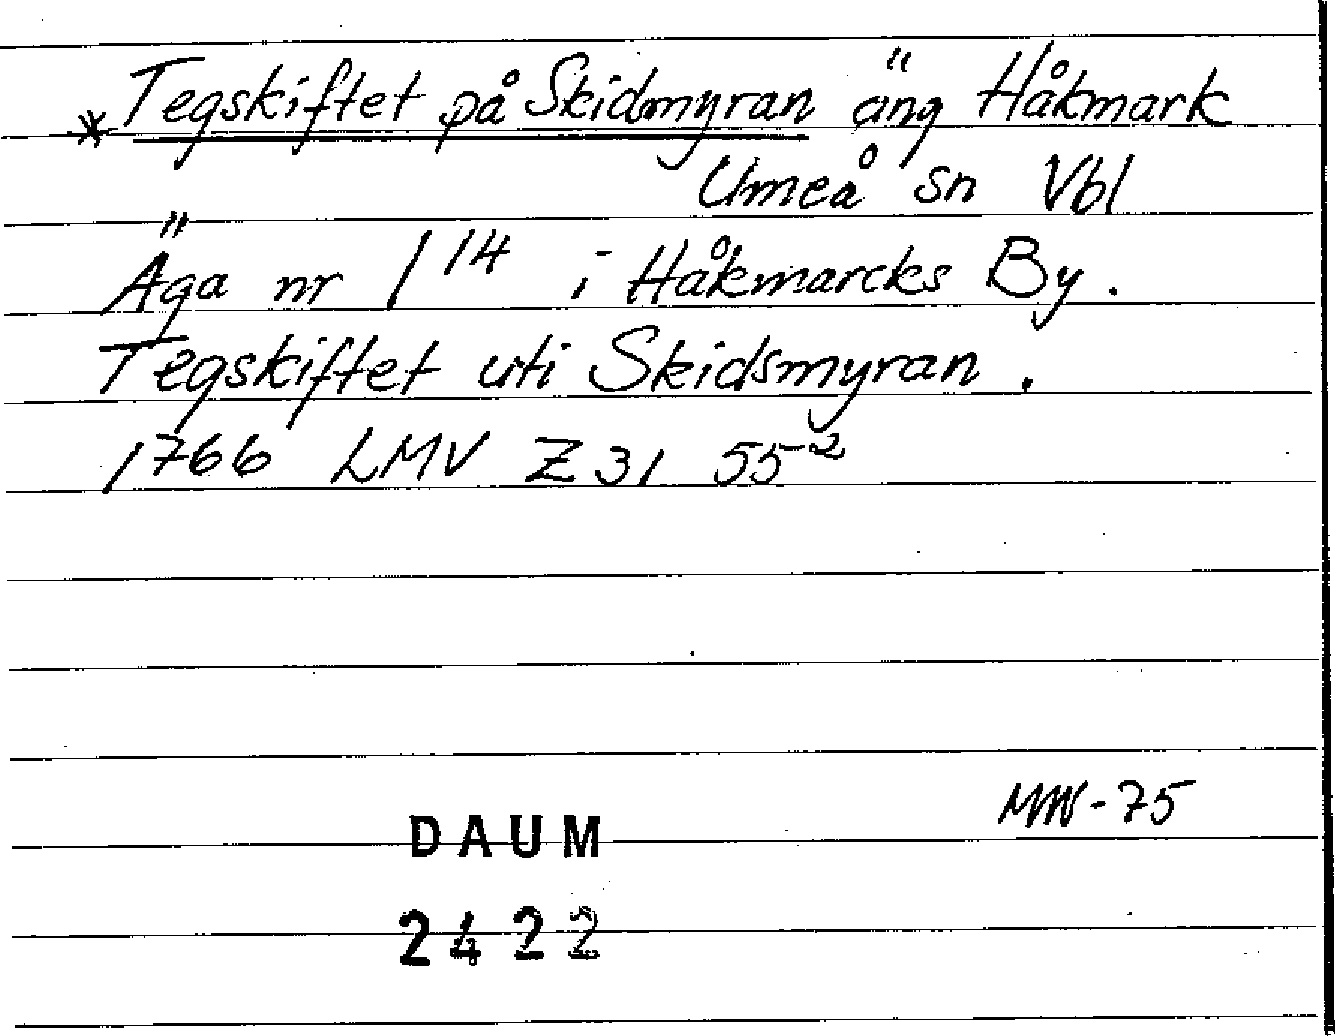 * Tegskiftet på Skidmyran äng Håkmark
Umeå sn Vbl
Äga nr 1 14 i Håkmarcks By.
Tegskiftet uti Skidsmyran.
1766 LMV Z 31 55-2
MW-75
DAUM
2422